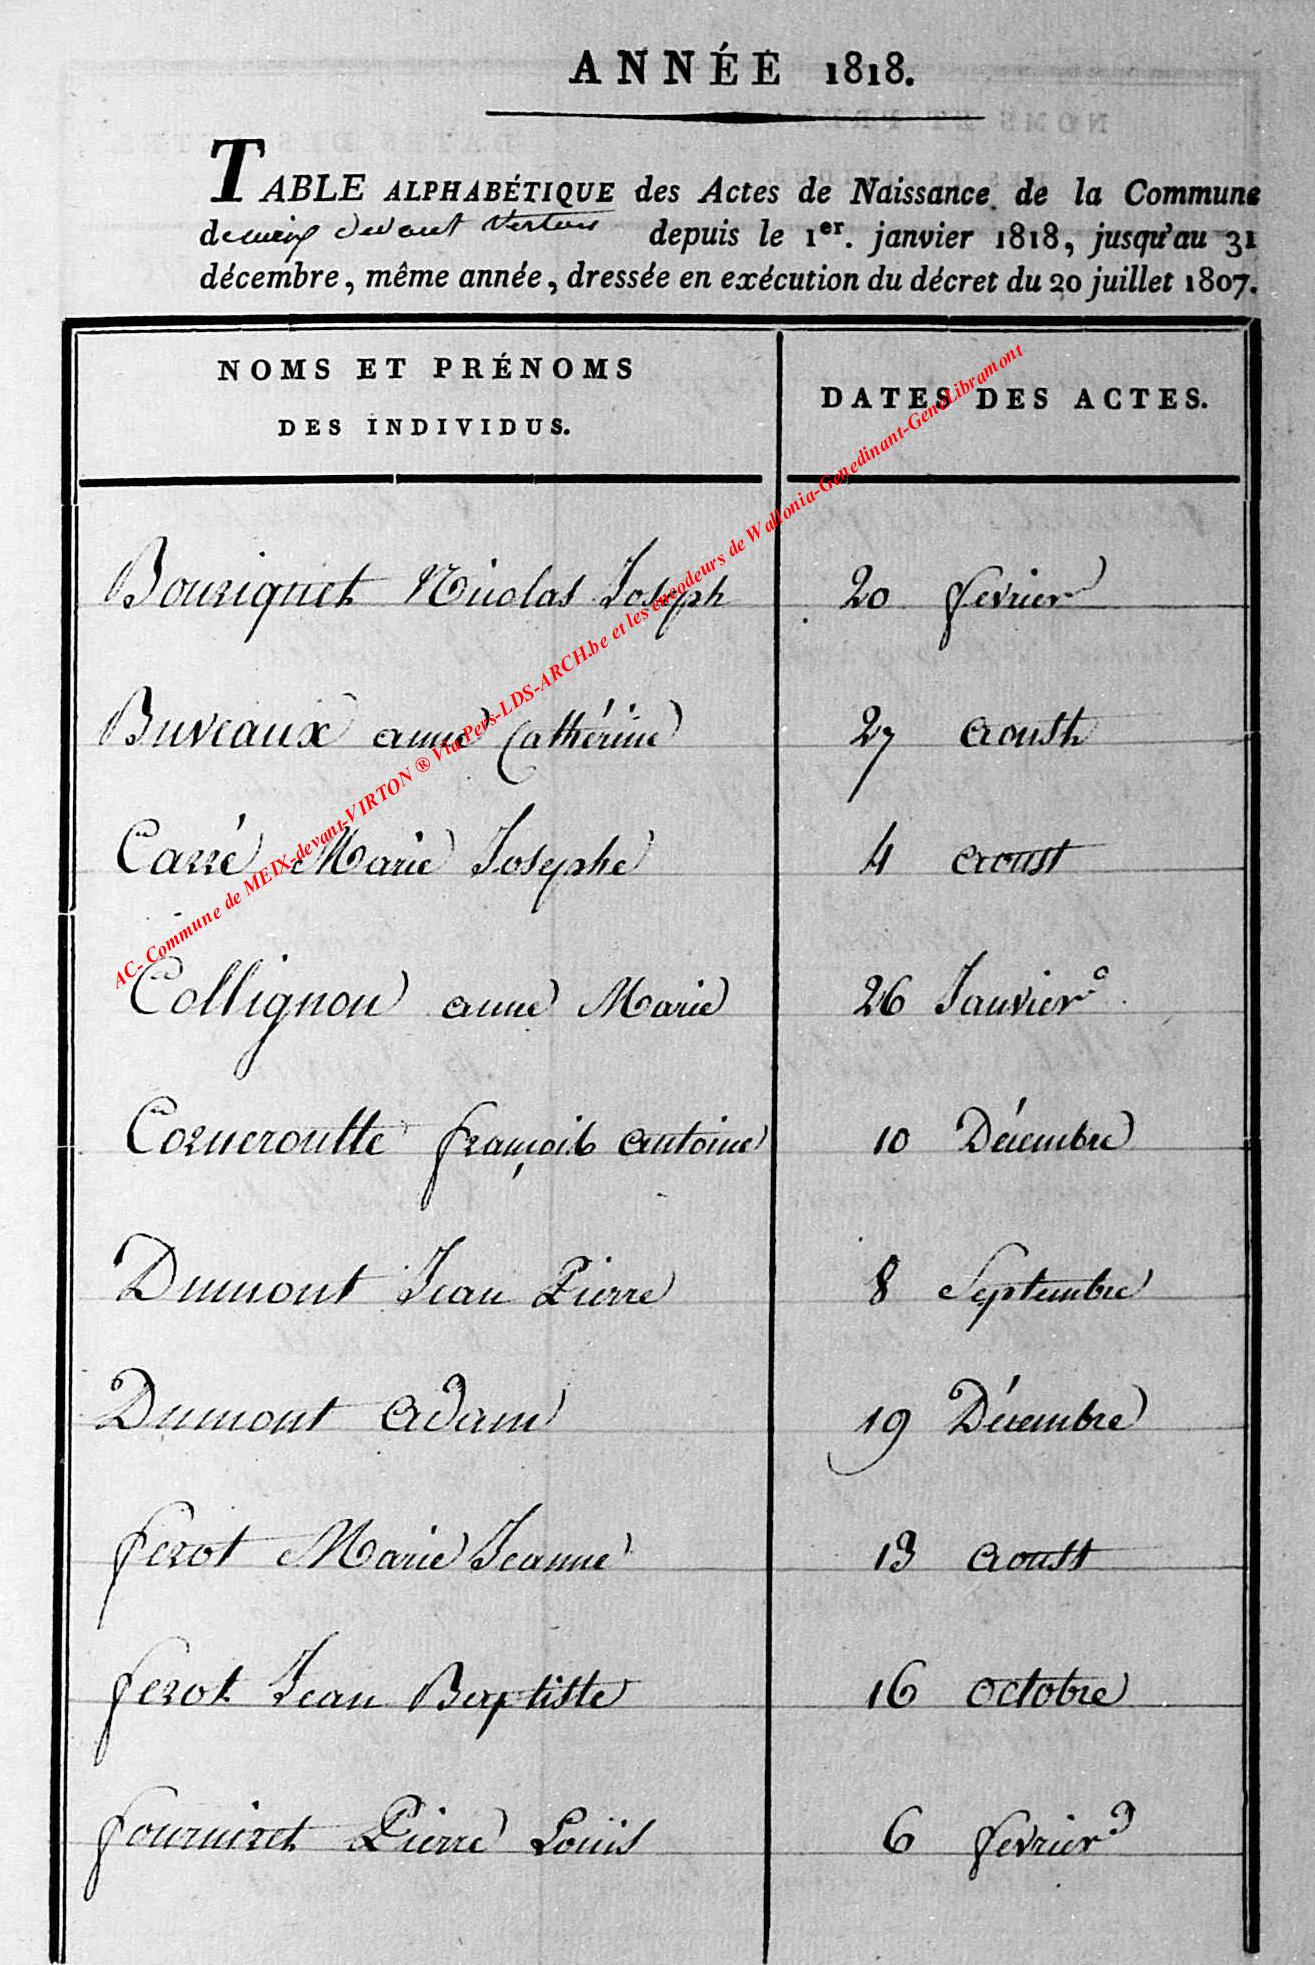 ANNÉE 1818.
TABLE ALPHABÉTIQUE des Actes de Naissance de la Commune
de meix devant Virton depuis le 1er. janvier 1818, jusqu'au 31
décembre, même année, dressée en exécution du décret du 20 juillet 1807.
NOMS ET PRÉNOMS
DES INDIVIDUS.
DATES DES ACTES.
Bouriquet Nicolas Joseph 20 fevrier
Buveaux anne Cathérine 27 aoust
Carré Marie Josephe 4 aoust
Collignon anne Marie 26 Janvier
Corneroutte françois antoine 10 Décembre
Dumont Jean Pierre 8 Septembre
Dumont adam 19 Décembre
ferot Marie Jeanne 13 aoust
ferot Jean Baptiste 16 octobre
fourniret Pierre Louis 6 fevrier
AC- Commune de MEIX-devant-VIRTON ® Via Pers-LDS-ARCH.be et les encodeurs de Wallonia-Genedinant-GeneLibramont